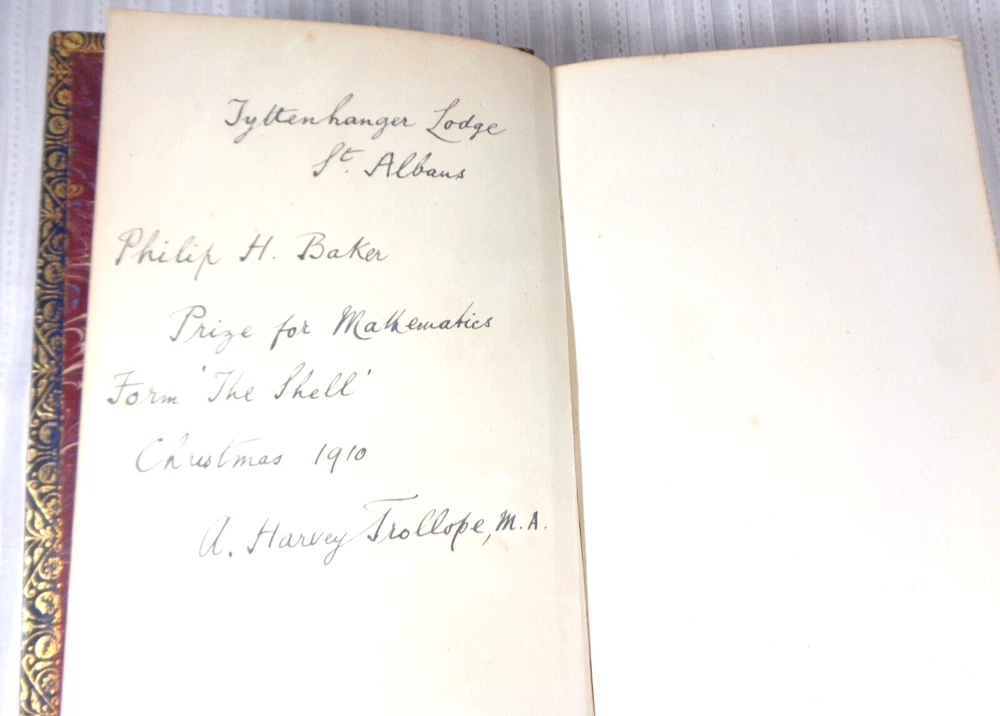 Tyttenhanger Lodge
St. Albans
Philip H. Baker
Prize for Mathematics
Form 'The Shell'
Christmas 1910
A. Harvey Trollope, M.A.